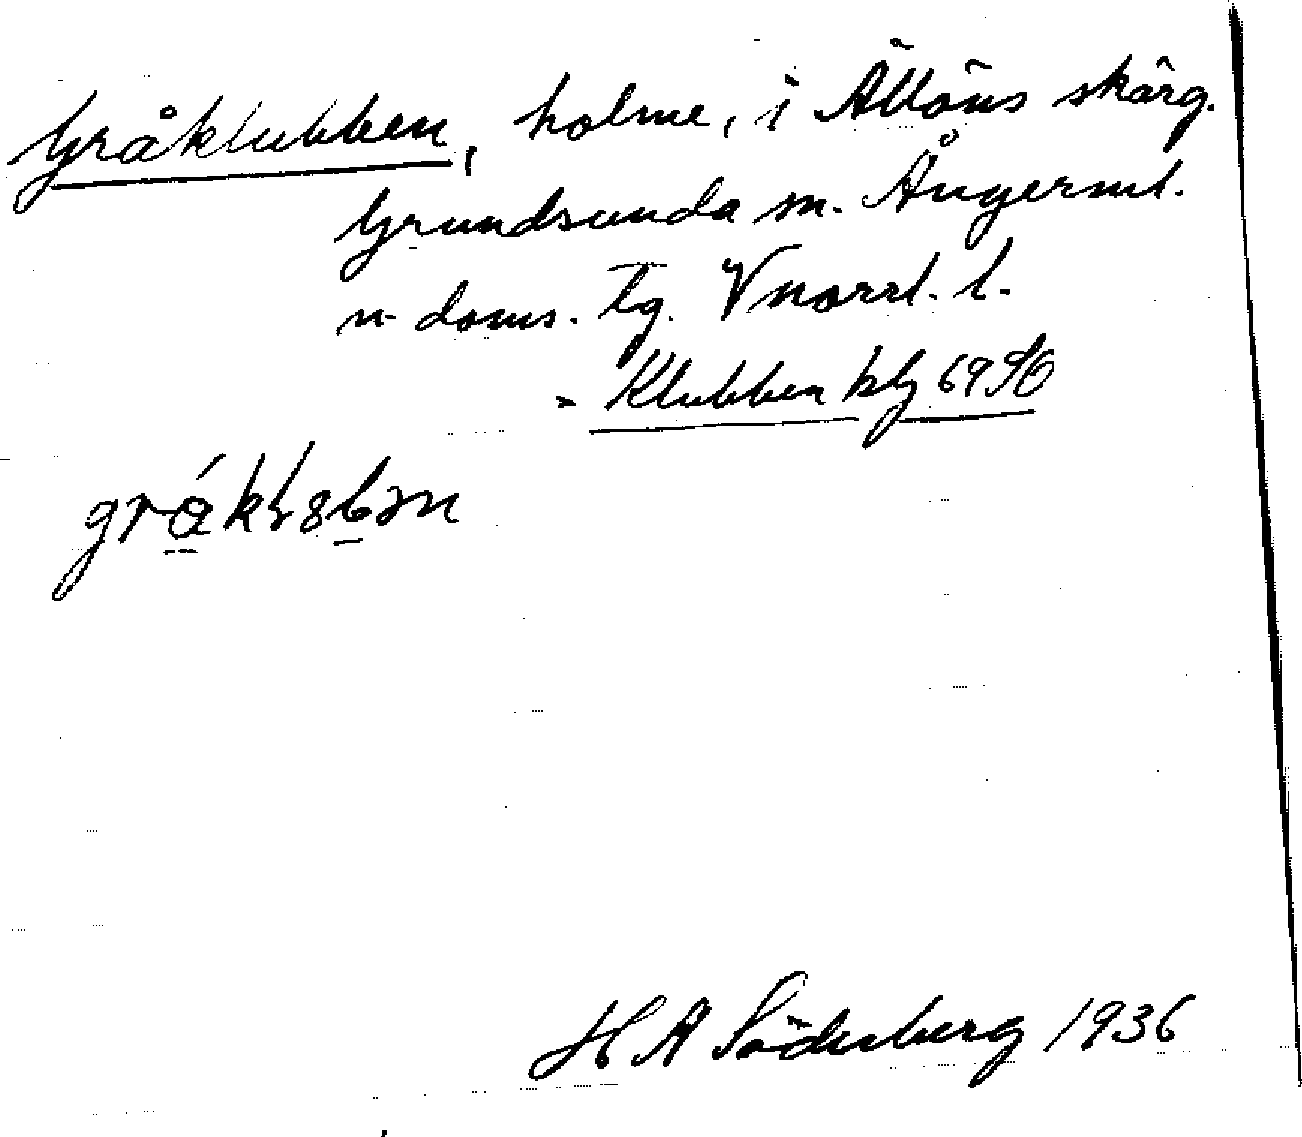 Gråklubben, holme, i Ällöns skärg.
Grundsunda sn. Ångerml.
n. doms. tg. Vnorrl. l.
= Klubben kbl 69 SO
H A Söderberg 1936